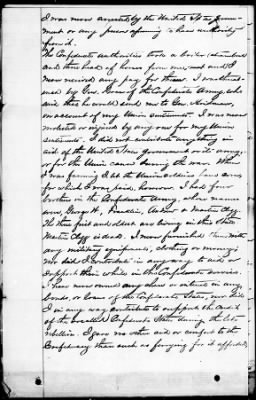 I was never arrested by the United States Govern-
ment or any person assuming to have authority
from it.
The Confederate authorities took a boiler
and three head of horses from me, and I
never received any pay for them. I was threat-
ened by Gen. of the Confederate Army, who
said that he would send me to Gen.
on account of my Union sentiments. I was never
molested or injured by any one for my Union
sentiments. I did not contribute anything in
aid of the United States government or its army,
or for the Union cause during the war. When
I was farming I let the Union soldiers have corn,
for which I was paid, however. I had four
brothers in the Confederate Army, whose names
were, George W., Franklin, Andrew & Martin Clegg.
The three first and oldest are living in this State.
Martin Clegg is dead. I never furnished them with
any military equipments, clothing or money;
nor did I contribute in any way to aid or
support them while in the Confederate service.
I have never owned any share or interest in any
bonds, or loans of the Confederate States, nor did
I in any way contribute to support the credit
of the so-called Confederate States during the late
rebellion. I gave no other aid or comfort to the
Confederacy than such as foraging for it afforded.